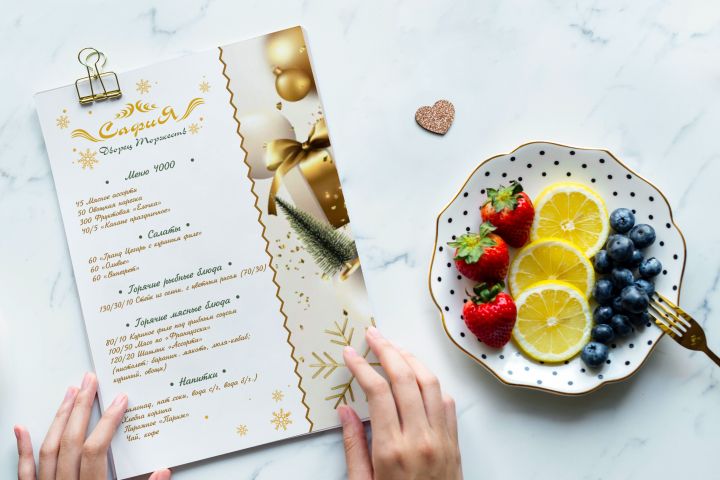 Сафия
Дворец Торжеств
Меню 4000
45 Мясное ассорти
50 Овощная нарезка
300 Фруктовая «Елочка»
40/5 «Канапе праздничное»
Салаты
60 «Гранд Цезарь с куриным филе»
60 «Оливье»
60 «Винегрет»
Горячие рыбные блюда
130/30/10 Стейк из семги, с цветным рисом (70/30)
Горячие мясные блюда
80/10 Куриное филе под грибным соусом
100/50 Мясо по «Французски»
120/20 Шашлик «Ассорти»
(пистолет: баранина, мякоть, люля-кебаб;
куриный, овощи)
Напитки
нат.соки, вода с/г, вода б/г.)
Хлебная корзина
Пирожное «Париж»
Чай, кофе